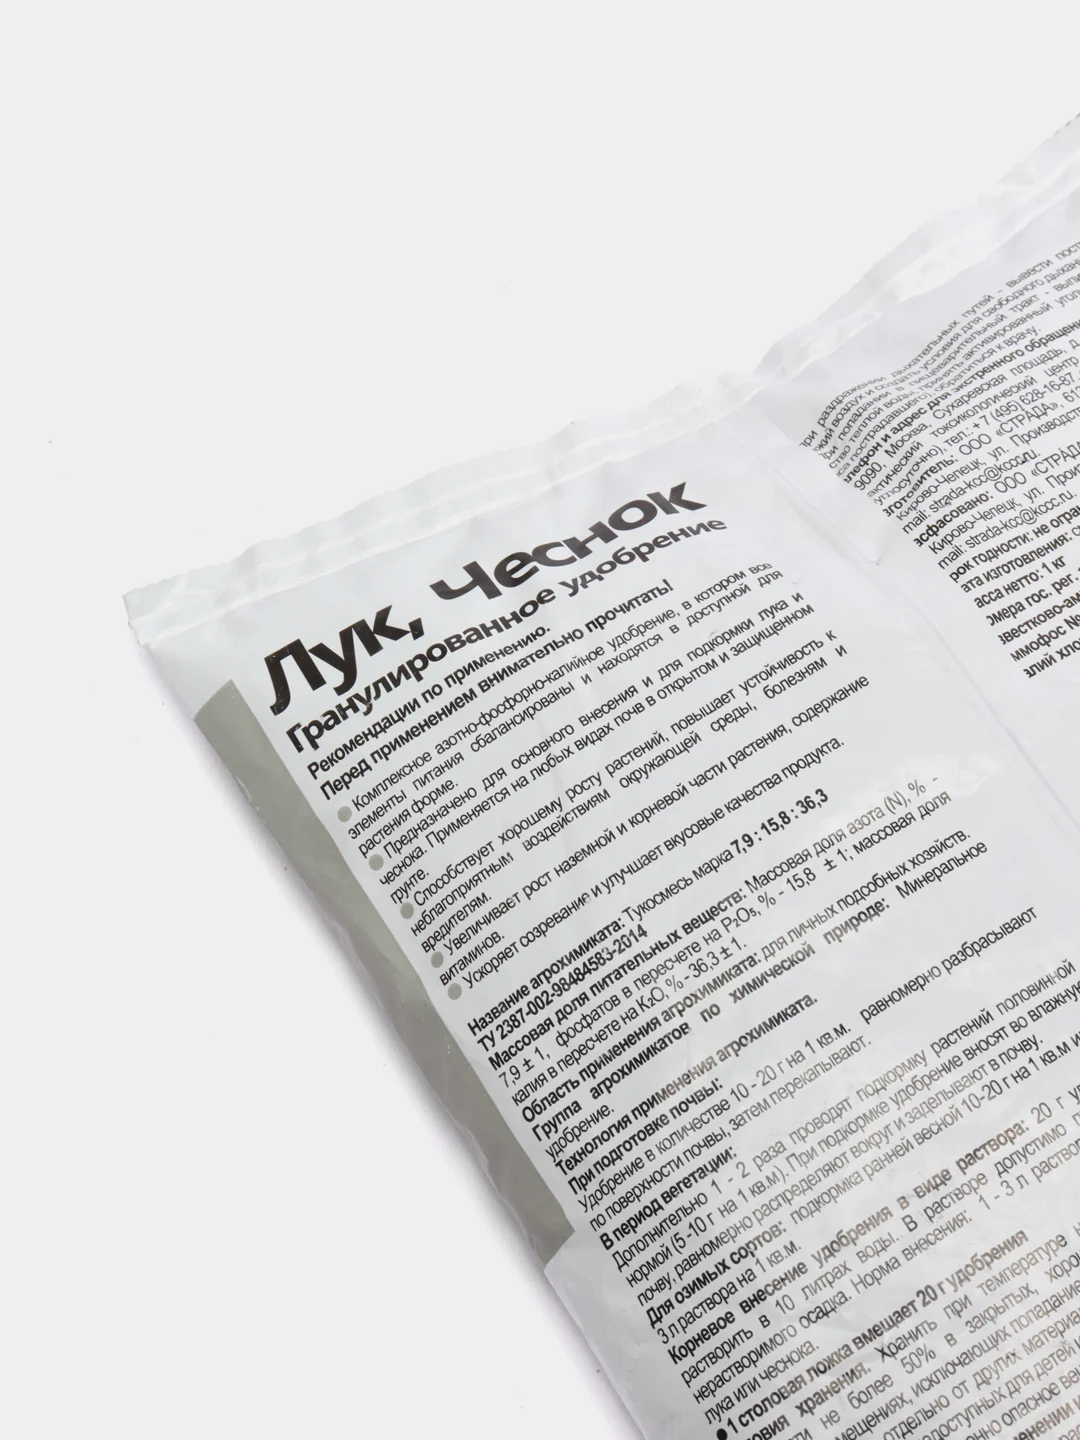 Лук, Чеснок
Гранулированное удобрение
Рекомендации по применению.
Перед применением внимательно прочитать!
Комплексное азотно-фосфорно-калийное удобрение, в котором все
элементы питания сбалансированы и находятся в доступной для
растения форме.
Предназначено для основного внесения и для подкормки лука и
чеснока. Применяется на любых видах почв в открытом и защищенном
грунте.
Способствует хорошему росту растений, повышает устойчивость к
неблагоприятным воздействиям окружающей среды, болезням и
вредителям.
Увеличивает рост наземной и корневой части растения, содержание
витаминов.
Ускоряет созревание и улучшает вкусовые качества продукта.
Название агрохимиката: Тукосмесь марка 7,9 : 15,8 : 36,3
ТУ 2387-002-98484583-2014
Массовая доля питательных веществ: Массовая доля азота (N), % -
7,9 ± 1, фосфатов в пересчете на P₂O₅, % - 15,8 ± 1; массовая доля
калия в пересчете на K₂O, % - 36,3 ± 1.
Область применения агрохимиката: для личных подсобных хозяйств.
Группа агрохимикатов по химической природе: Минеральное
удобрение.
Технология применения агрохимиката.
При подготовке почвы:
Удобрение в количестве 10 - 20 г на 1 кв.м. равномерно разбрасывают
по поверхности почвы, затем перекапывают.
В период вегетации:
Дополнительно 1 - 2 раза проводят подкормку растений половинной
нормой (5 -10 г на 1 кв.м). При подкормке удобрение вносят во влажную
почву, равномерно распределяют вокруг и заделывают в почву.
Для озимых сортов: подкормка ранней весной 10-20 г на 1 кв.м и
3 л раствора на 1 кв.м.
Корневное внесение удобрения в виде раствора: 20 г
растворить в 10 литрах воды. В растворе допустимо
нерастворимого осадка. Норма внесения: 1 - 3 л
лука или чеснока.
1 столовая ложка вмещает 20 г удобрения
хранения. Хранить при температуре
не более 50% в закрытых,
исключающих попадание
отдельно от других
для детей
опасное
путей - вывести
воздух и создать условия для свободного
попадании в пищеварительный тракт -
теплой воды, принять активированный
обратиться к врачу.
и адрес для экстренного
9090, Москва, Сухаревская площадь, д.
токсикологический центр
тел.: + 7 (495) 628-16-87
ООО «СТРАДА», 613
Кирово-Чепецк, ул. Производст
mail: strada-kcc@kccc.ru.
асфасовано: ООО «СТРАДА
Кирово-Чепецк, ул. Прои
mail: strada-kcc@kccc.ru.
рок годности: не огра
ата изготовления:
асса нетто: 1 кг
омера гос. рег.
звестково-ам
ммофос №
алий хло